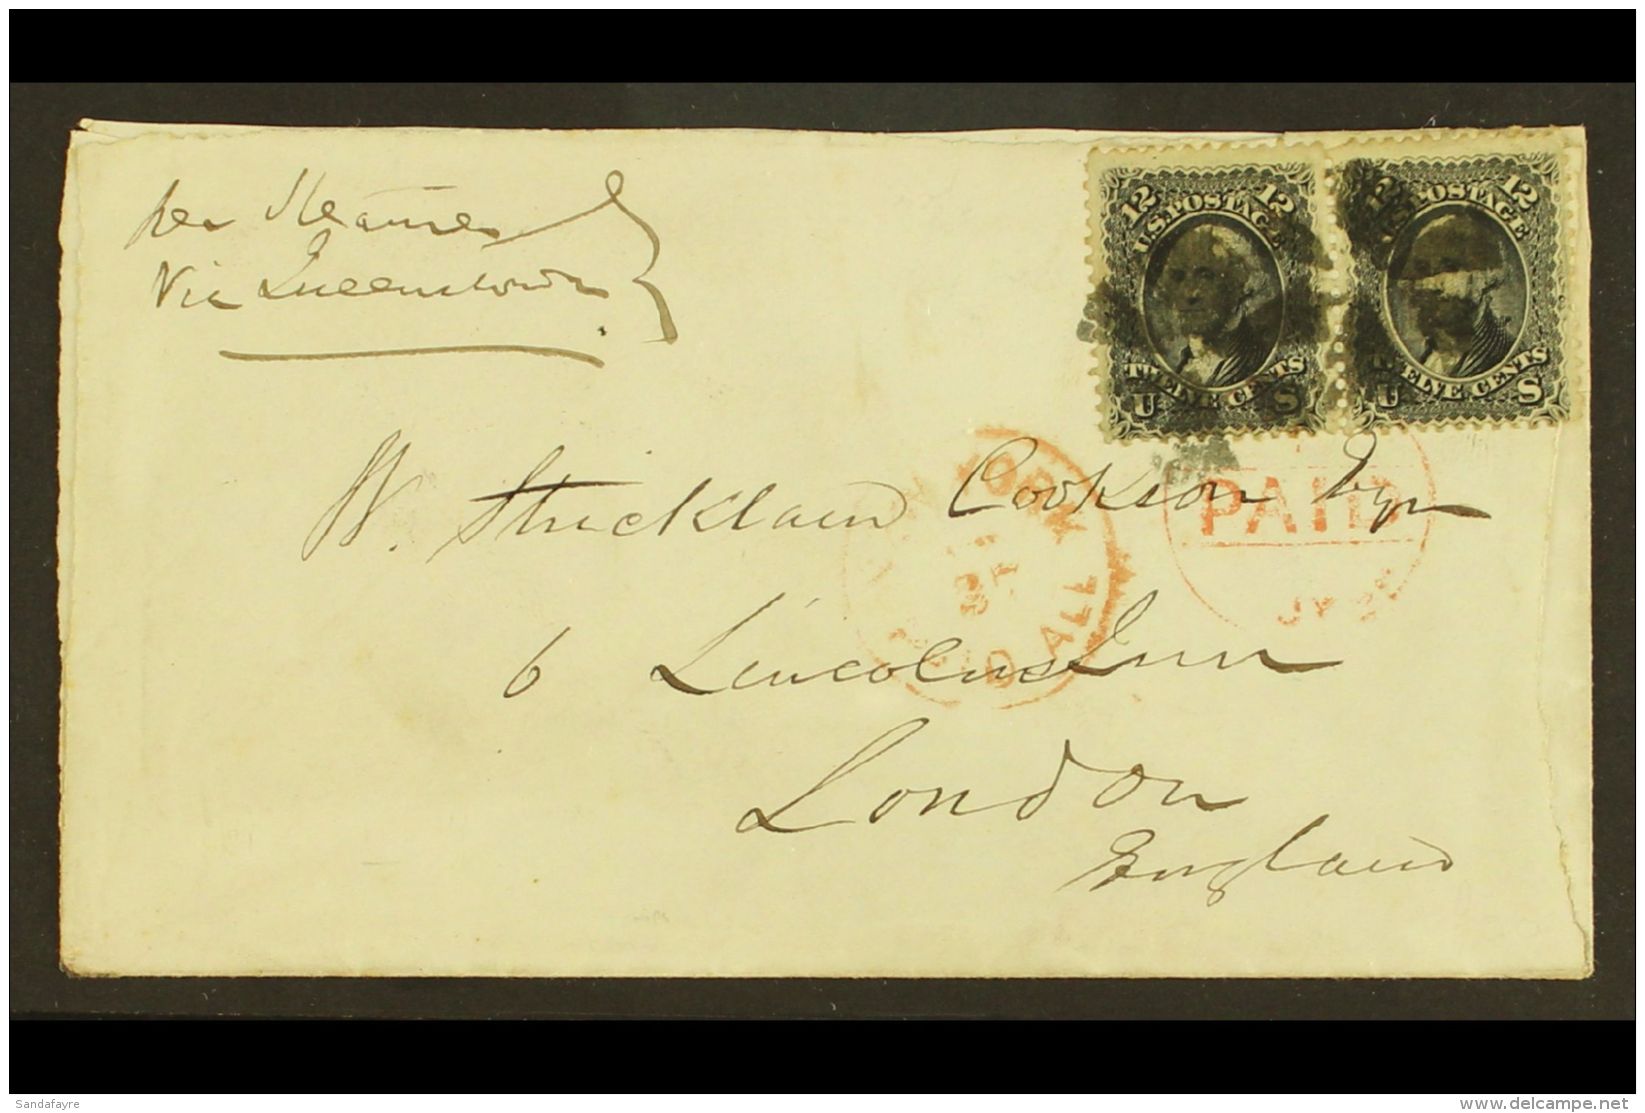 per Steamer
Via Queenstown
12 U.S. POSTAGE 12
TWELVE CENTS
U S
12 U.S. POSTAGE 12
TWELVE CENTS
U S
W. Strickland Cookson Esqr
YORK
PAID ALL
PAID
6 Lincolns Inn
London
England
Sandafayre
www.delcampe.net